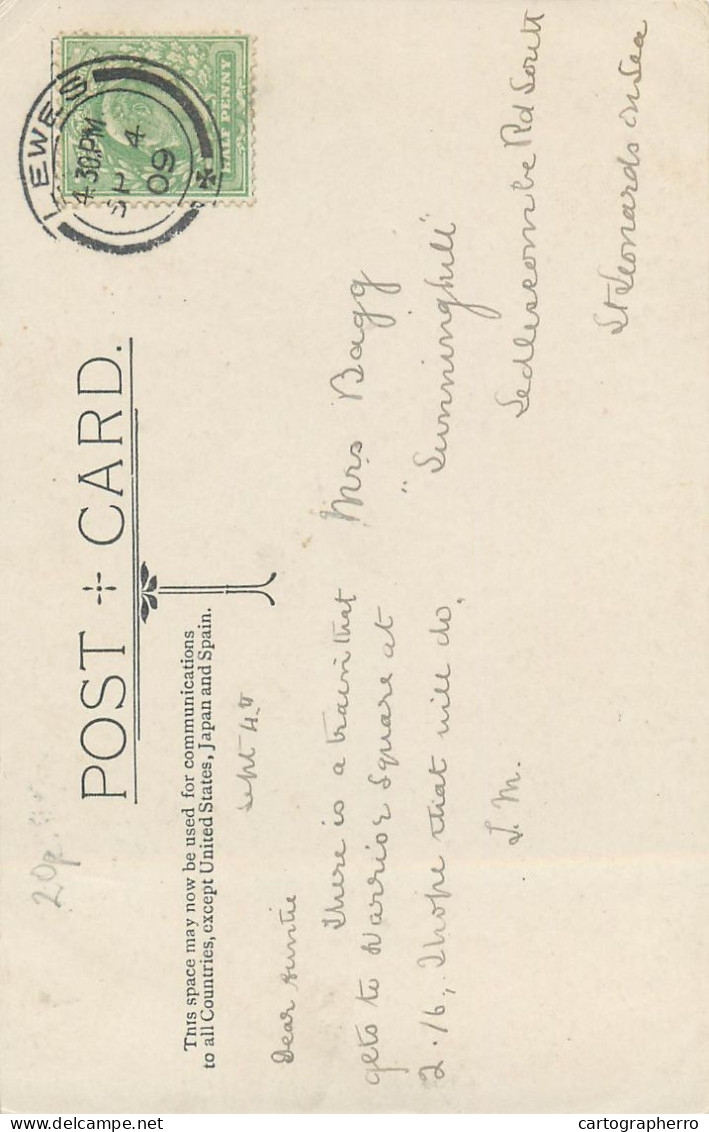 POST CARD.
This space may now be used for communications
to all Countries, except United States, Japan and Spain.
LEWES
4.30 PM
SP 4
09
HALF PENNY
20p
Sept 4th
Dear Auntie
There is a train that
gets to Warrior Square at
2.16, I hope that will do.
Mrs Bagg
"Sunninghill"
Sedlescombe Rd South
St Leonards on Sea
cartographerro